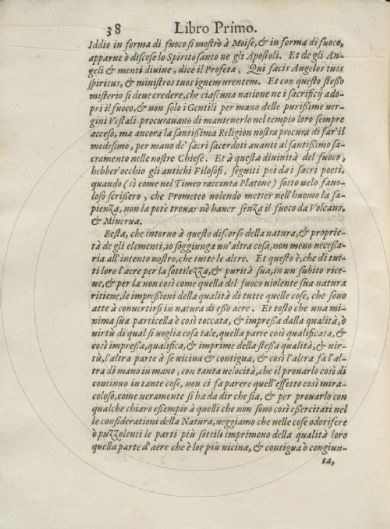 38 Libro Primo.
Iddio in forma di fuoco si mostrò à Moise, & in forma di fuoco,
apparue ò discese lo Spirito santo ne gli Apostoli. Et de gli An-
geli & menti diuine, dice il Profeta, Qui facis Angelos tuos
spiritus, & ministros tuos ignem vrentem. Et con questo stesso
misterio si deue credere, che ciascuna natione ne i sacrificij ado-
pri il fuoco, & non solo i Gentili per mano delle purissime ver-
gini Vestali procurauano di mantenerlo nel tempio loro sempre
acceso, ma ancora la santissima Religion nostra procura di far'il
medesimo, per mano de' sacri sacerdoti auanti al santissimo sa-
cramento nelle nostre Chiese. Et à questa diuinità del fuoco,
hebber'occhio gli antichi Filosofi, seguiti poi da i sacri poeti,
quando (si come nel Timeo racconta Platone) sotto velo fauo-
loso scrissero, che Prometeo volendo metter nell'huomo la sa-
pienza, non la potè trouar nè hauer senza il fuoco da Volcano,
& Minerua.
Resta, che intorno à questo discorso della natura, & proprie-
tà de gli elementi, io soggiunga vn'altra cosa, non meno necessa-
ria all'intento nostro, che tutte le altre. Et questo è, che di tut-
ti loro l'aere per la sottilezza, & purità sua, in un subito rice-
ue, & per la non così come quella del fuoco violente sua natura
ritiene, le impressioni della qualità di tutte quelle cose, che sono
atte à conuertirsi in natura di esso aere. Et tosto che una mi-
nima sua particella è così toccata, & impressa dalla qualità, ò
virtù di qual si voglia cosa tale, quella parte così qualificata, &
così impressa, qualifica, & imprime della stessa qualità, & vir-
tù, l'altra parte à se vicina & contigua, & così l'altra fà l'al-
tra di mano in mano; con tanta velocità, che il prouarlo così di
continuo in tante cose, non ci fa parere quell'effetto così mira-
coloso, come veramente si ha da dir che sia, & per prouarlo con
qualche chiaro essempio à quelli che non sono così esercitati nel
le considerationi della Natura, veggiamo che nelle cose odorifere
ò puzzolenti le parti più sottili imprimono della qualità loro
quella parte d'aere che è lor più vicina, & contigua ò congiun-
ta,